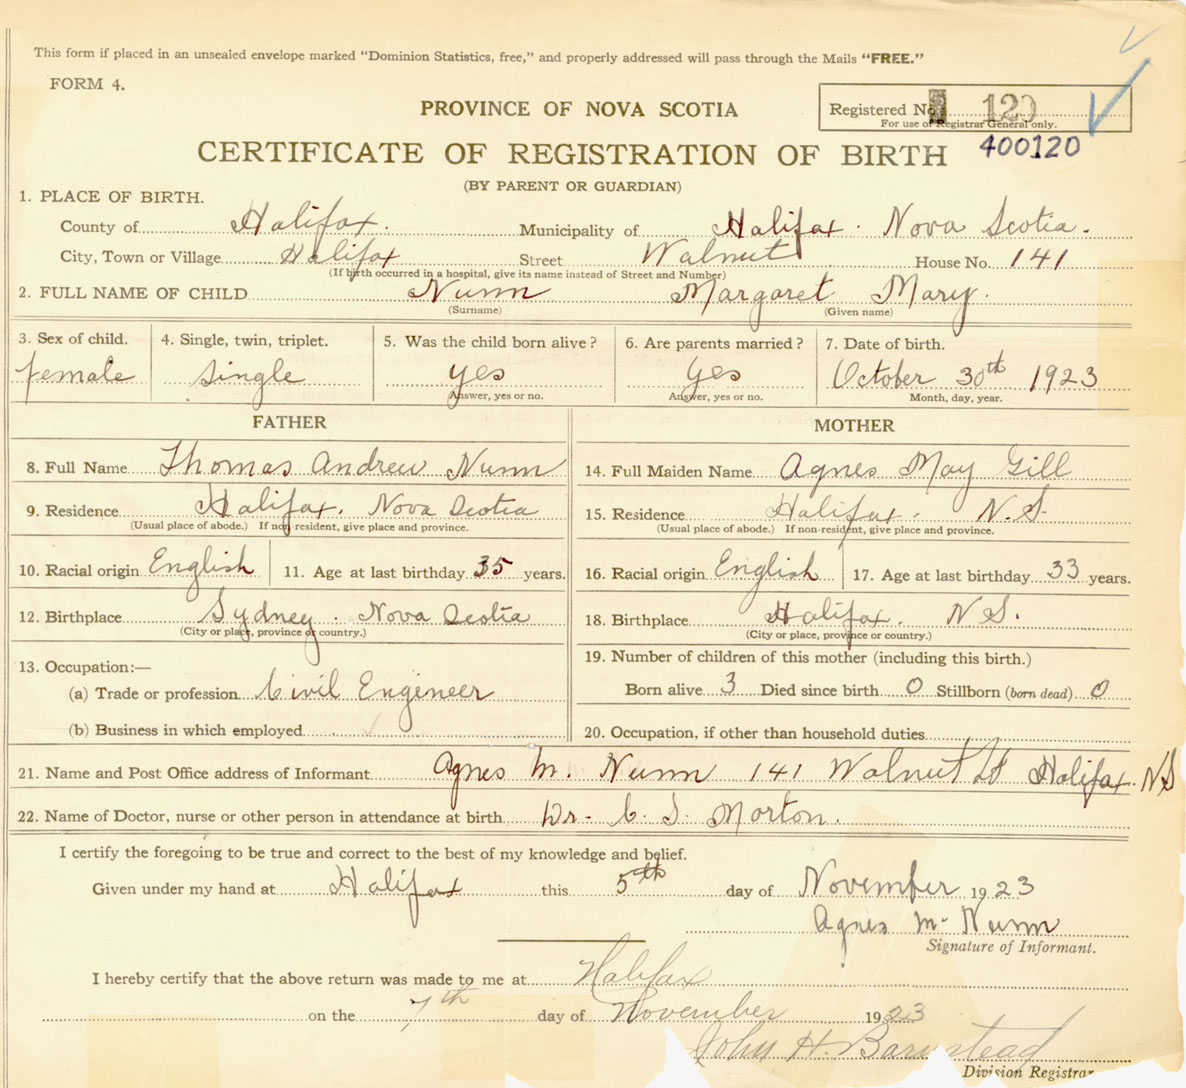 This form if placed in an unsealed envelope marked "Dominion Statistics, free," and properly addressed will pass through the Mails "FREE."
FORM 4.
PROVINCE OF NOVA SCOTIA
Registered No. 120
For use of Registrar General only.
CERTIFICATE OF REGISTRATION OF BIRTH 400120
(BY PARENT OR GUARDIAN)
1. PLACE OF BIRTH.
County of Halifax. Municipality of Halifax. Nova Scotia.
City, Town or Village Halifax Street Walnut House No. 141
(If birth occurred in a hospital, give its name instead of Street and Number)
2. FULL NAME OF CHILD Nunn Margaret Mary.
(Surname) (Given name)
3. Sex of child. 4. Single, twin, triplet. 5. Was the child born alive? 6. Are parents married? 7. Date of birth.
female single yes yes October 30th 1923
Answer, yes or no. Answer, yes or no. Month, day, year.
FATHER MOTHER
8. Full Name Thomas Andrew Nunn 14. Full Maiden Name Agnes May Gill
9. Residence Halifax. Nova Scotia 15. Residence Halifax. N.S.
(Usual place of abode.) If non-resident, give place and province. (Usual place of abode.) If non-resident, give place and province.
10. Racial origin English 11. Age at last birthday 35 years. 16. Racial origin English 17. Age at last birthday 33 years.
12. Birthplace Sydney. Nova Scotia 18. Birthplace Halifax. N S.
(City or place, province or country.) (City or place, province or country.)
13. Occupation:— 19. Number of children of this mother (including this birth.)
(a) Trade or profession Civil Engineer Born alive 3 Died since birth 0 Stillborn (born dead) 0
(b) Business in which employed 20. Occupation, if other than household duties
21. Name and Post Office address of Informant Agnes M. Nunn 141 Walnut St Halifax. N S
22. Name of Doctor, nurse or other person in attendance at birth Dr. C. S. Morton.
I certify the foregoing to be true and correct to the best of my knowledge and belief.
Given under my hand at Halifax this 5th day of November 1923
Agnes M. Nunn
Signature of Informant.
I hereby certify that the above return was made to me at Halifax
on the 7th day of November 1923
John H. Barnstead
Division Registrar